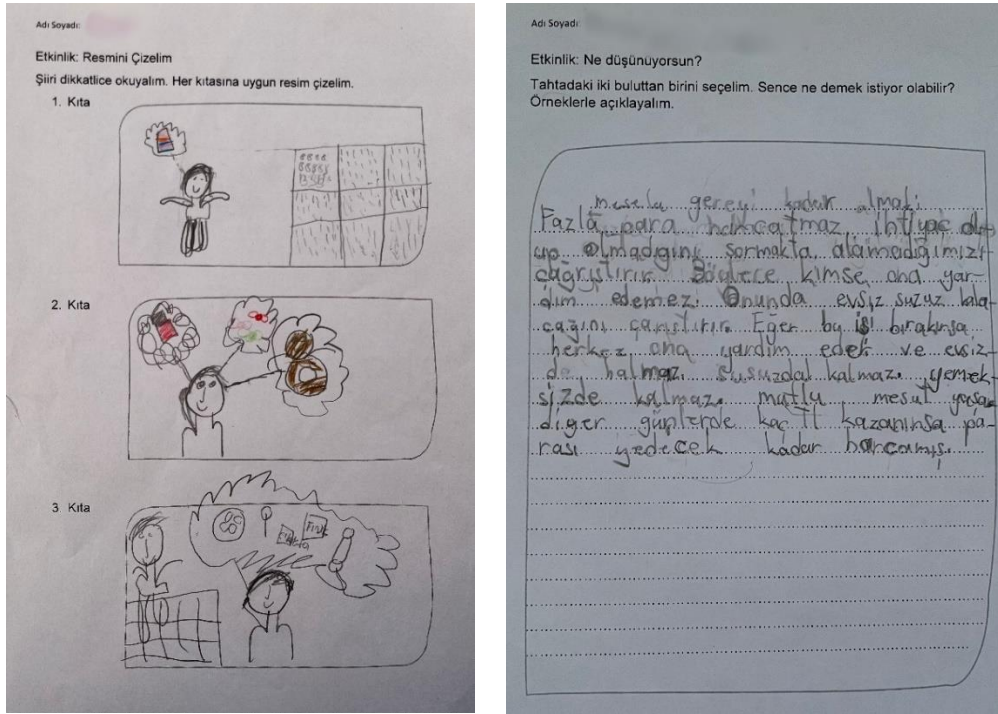 Adı Soyadı:
Etkinlik: Resmini Çizelim
Şiiri dikkatlice okuyalım. Her kıtasına uygun resim çizelim.
1. Kıta
2. Kıta
3 Kıta
Adı Soyadı:
Etkinlik: Ne düşünüyorsun?
Tahtadaki iki buluttan birini seçelim. Sence ne demek istiyor olabilir?
Örneklerle açıklayalım.
mesela gereği kadar almak
Fazla para harcatmaz ihtiyaç olup
olmadığını sormakta alamadığımızı
çağrıştırır Böylece kimse ona yar-
dım edemez. Onunda evsiz suzuz kala
cağını çarıştırır. Eğer bu işi bırakırsa
herkez ona yardım eder ve evsiz
de kalmaz. Susuzdal kalmaz. yemek-
sizde kalmaz. mutlu mesut yaşar
diger günlerde kaç Tl kazanırsa pa-
rası yedecek kadar harcamış.